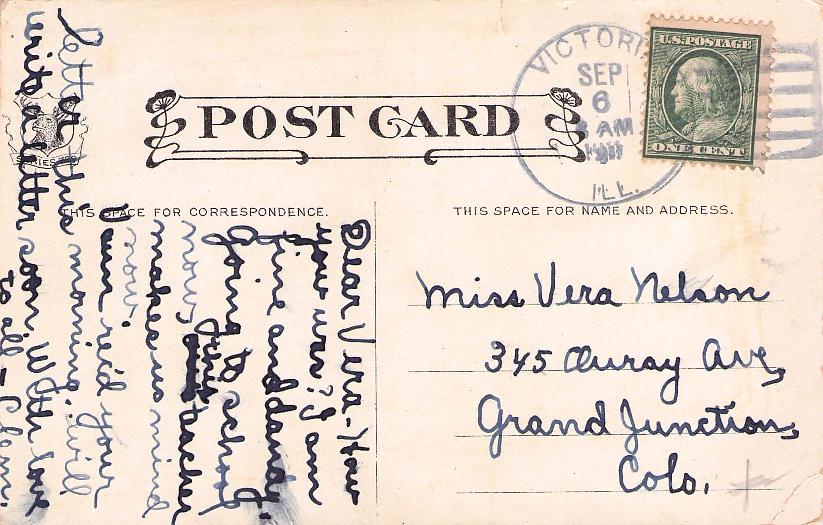 POST CARD
VICTORIA
SEP
6
AM
1911
ILL.
U.S. POSTAGE
ONE CENT
SERIES
THIS SPACE FOR CORRESPONDENCE.
THIS SPACE FOR NAME AND ADDRESS.
Dear Vera - How
I am
fine and dandy.
Going to school
now, teacher
makes us mind
now.
rec'd your
letter this morning. will
write a letter soon. With love
to all - Clem.
Miss Vera Nelson
345 Ouray Ave,
Grand Junction,
Colo.